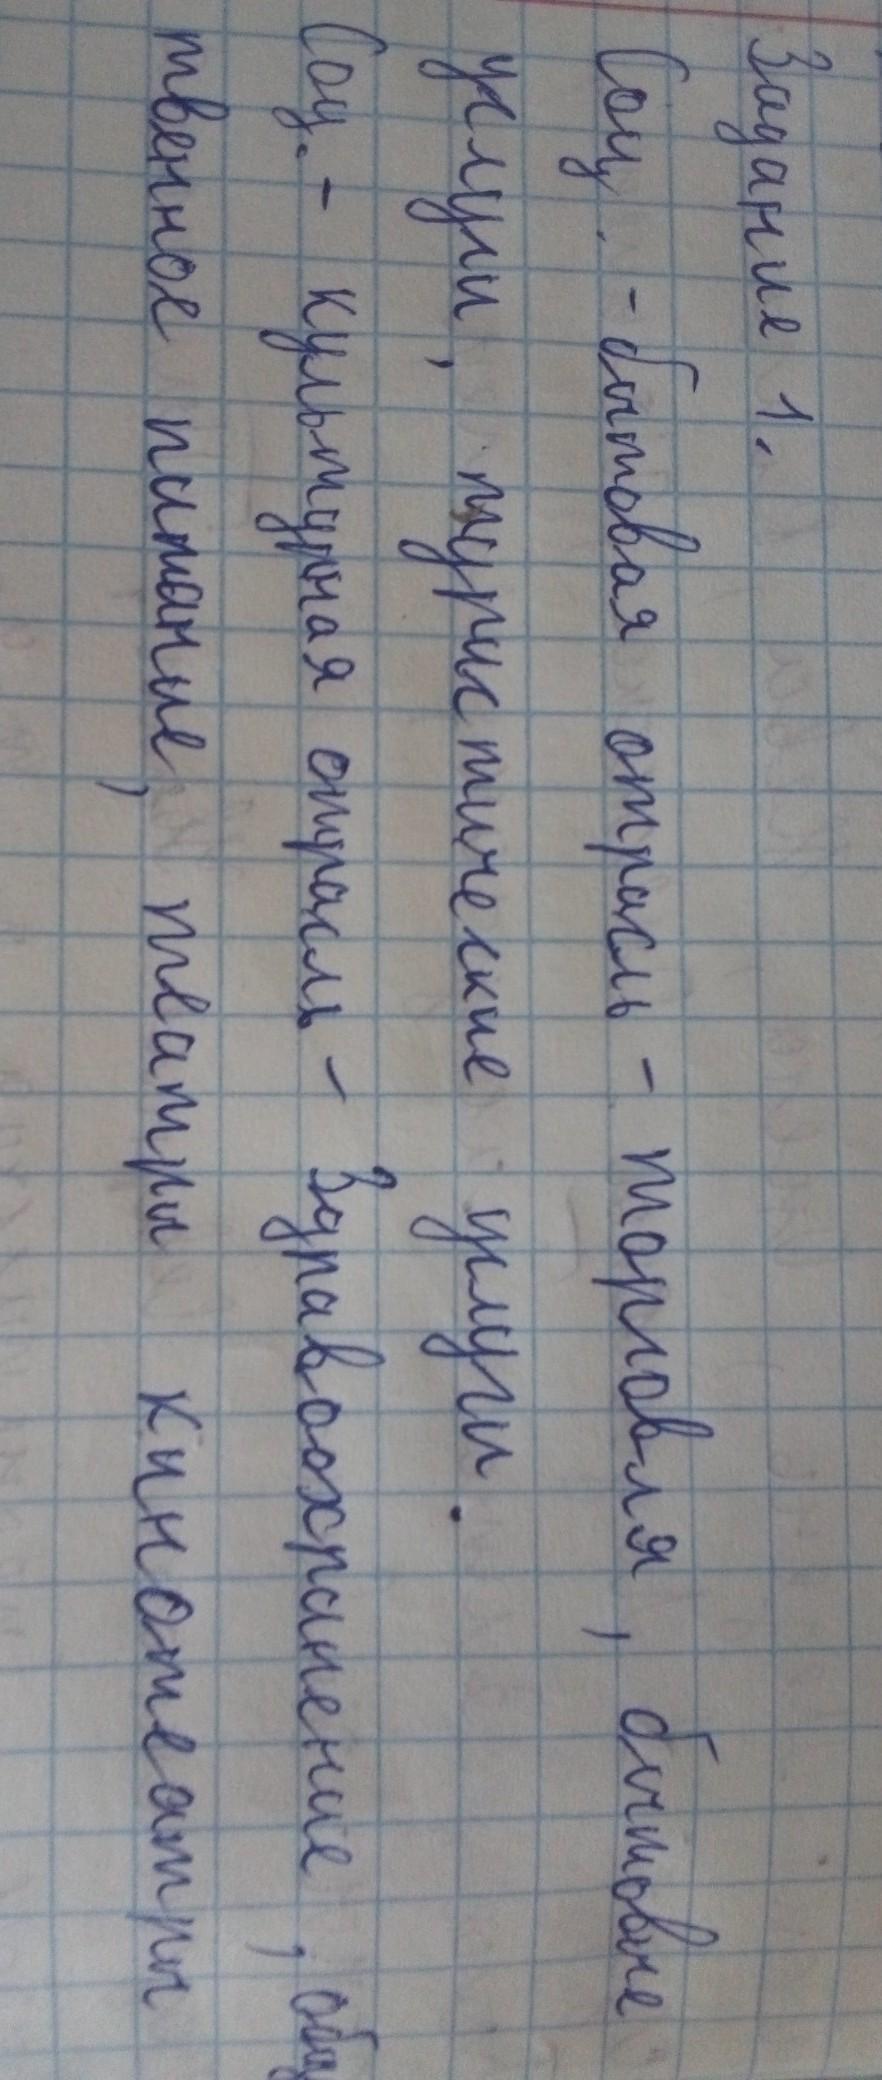 Задание 1.
Соц. - бытовая отрасль - торговля, бытовые
услуги, туристические услуги.
Соц. - культурная отрасль - Здравоохранение, общ
твенное питание, театры кинотеатры